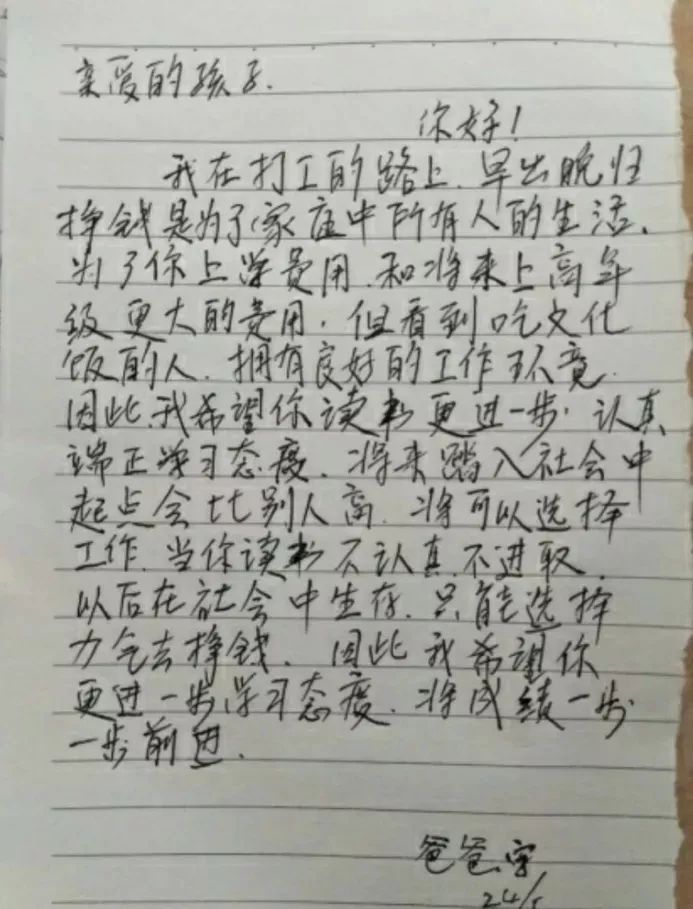 亲爱的孩子.
你好！
我在打工的路上.早出晚归
挣钱是为了家庭中所有人的生活.
为了你上学费用.和将来上高年
级更大的费用.但看到吃文化
饭的人.拥有良好的工作环境.
因此.我希望你读书更进一步.认真
端正学习态度.将来踏入社会中
起点会比别人高.将可以选择
工作.当你读书不认真.不进取.
以后在社会中生存.只能选择
力气去挣钱.因此我希望你
更进一步学习态度.将成绩一步
一步前进.
爸爸.字
24/5